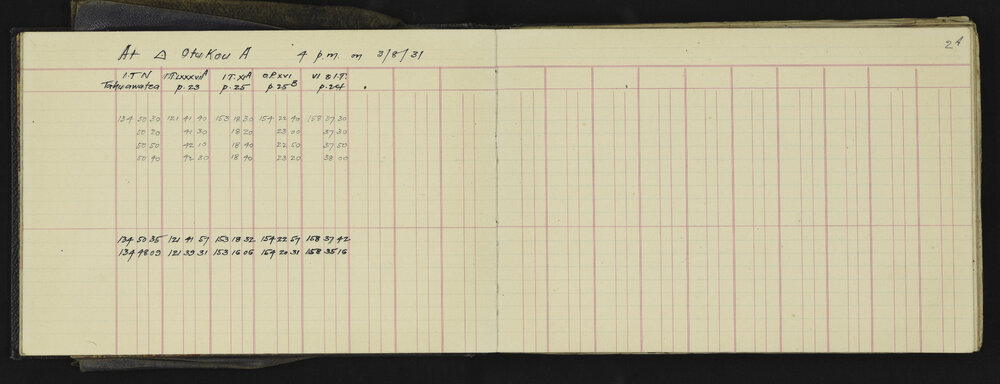 24
At △ Otakou A 4 p.m. on 3/8/31
I.T N I.T. LXXXVII A I T. XI A O.P. XVI VI S I.T.
Tahuawatea p. 23 p. 25 p 25 B p. 24
134 50 30 121 41 40 153 18 30 154 22 40 158 37 30
50 20 41 30 18 20 23 00 37 30
50 50 42 10 18 40 22 50 37 50
50 40 42 30 18 40 23 20 38 00
134 50 35 121 41 57 153 18 32 154 22 57 158 37 42
134 48 09 121 39 31 153 16 06 154 20 31 158 35 16